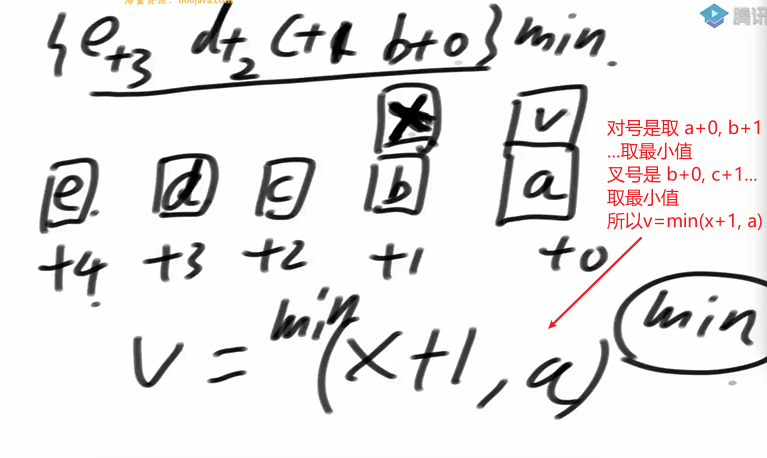 海量资源：666java.com
腾讯
{e+3 d+2 c+1 b+0}min.
x v
e d c b a
+4 +3 +2 +1 +0
对号是取 a+0, b+1
...取最小值
叉号是 b+0, c+1...
取最小值
所以v=min(x+1, a)
v = min(x+1, a) min